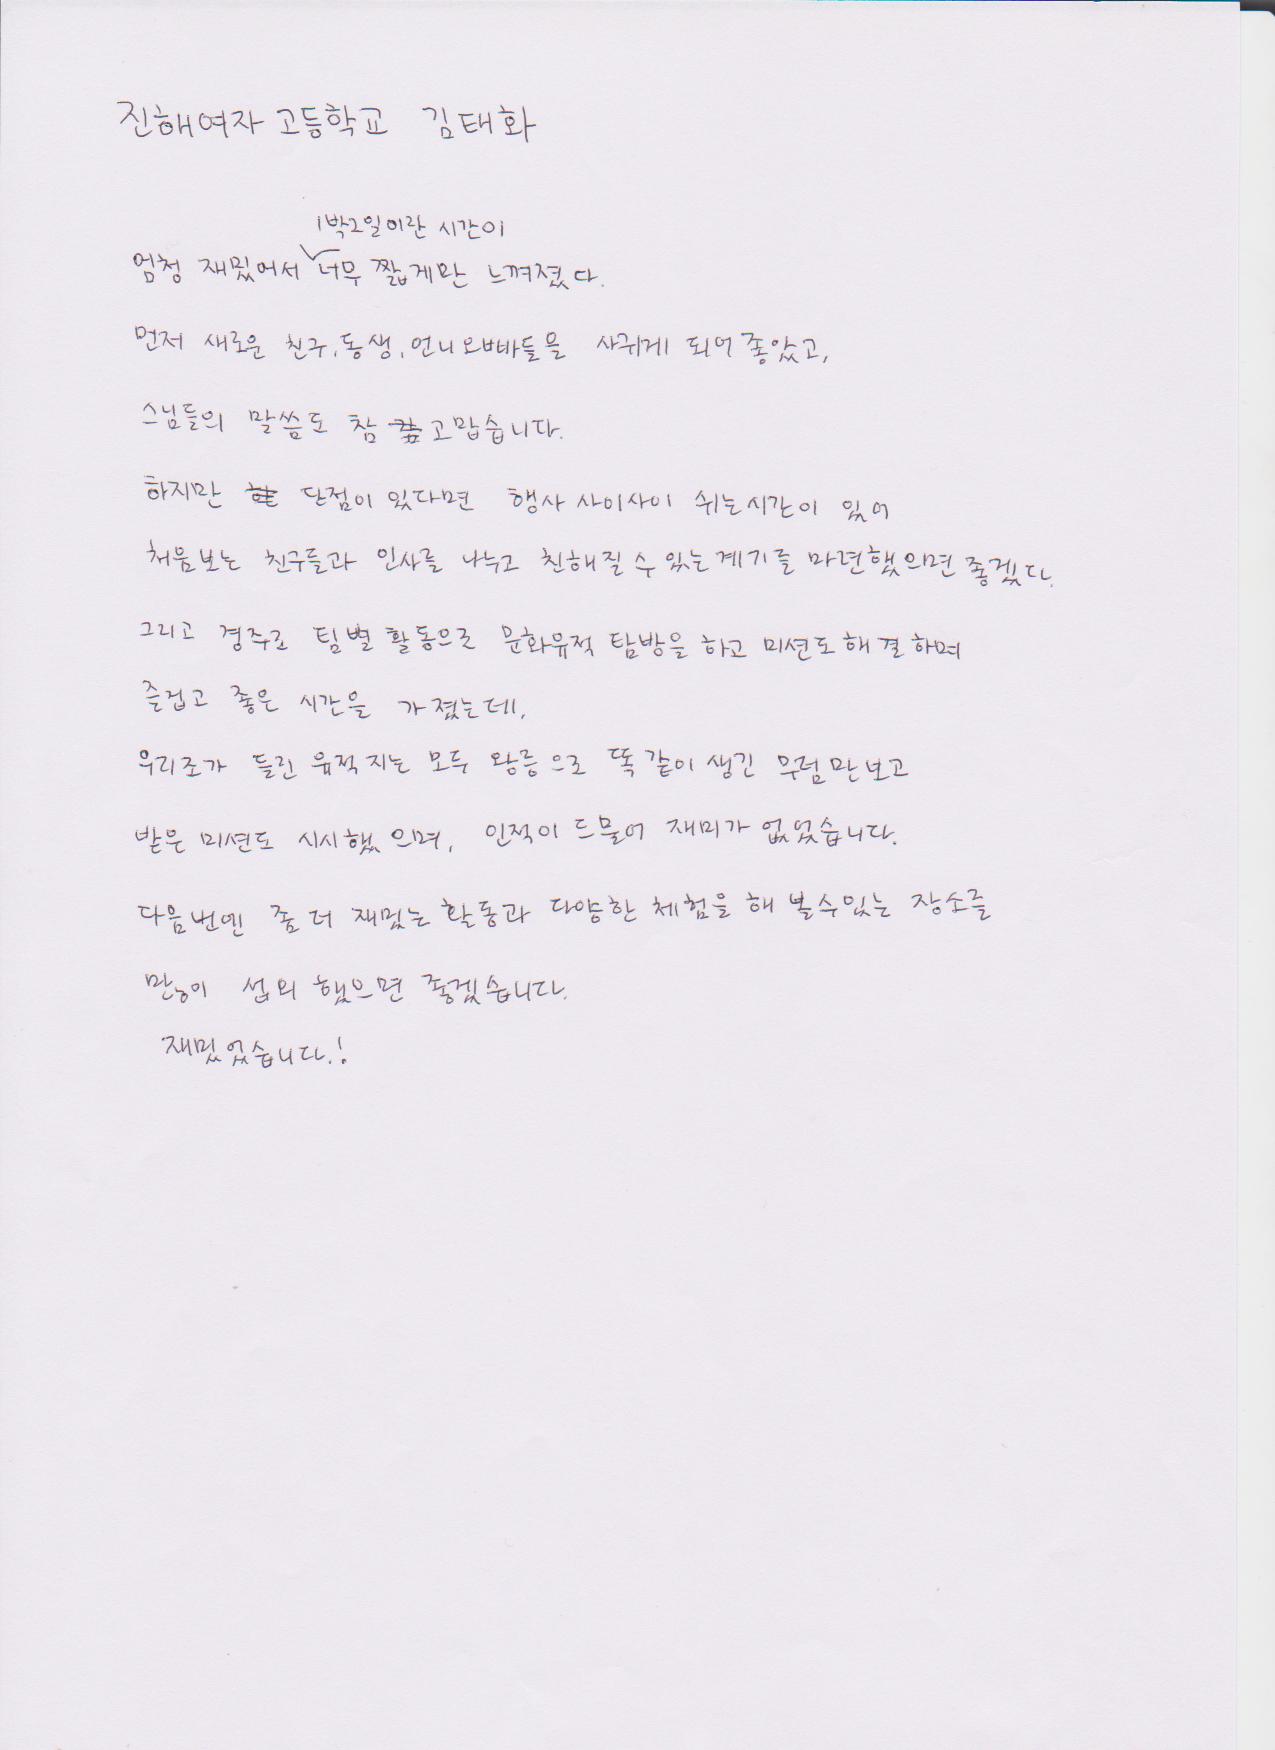 진해여자 고등학교 김태화
1박2일이란 시간이
엄청 재밌어서 너무 짧게만 느껴졌다.
먼저 새로운 친구, 동생, 언니오빠들을 사귀게 되어 좋았고,
스님들의 말씀도 참 고맙습니다.
하지만 단점이 있다면 행사 사이사이 쉬는시간이 있어
처음보는 친구들과 인사를 나누고 친해질 수 있는 계기를 마련했으면 좋겠다.
그리고 경주로 팀별 활동으로 문화유적 탐방을 하고 미션도 해결하며
즐겁고 좋은 시간을 가졌는데,
우리조가 들린 유적지는 모두 왕릉으로 똑같이 생긴 무덤만보고
받은 미션도 시시했으며, 인적이 드물어 재미가 없었습니다.
다음번엔 좀 더 재밌는 활동과 다양한 체험을 해 볼수있는 장소를
많이 섭외 했으면 좋겠습니다.
재밌었습니다.!